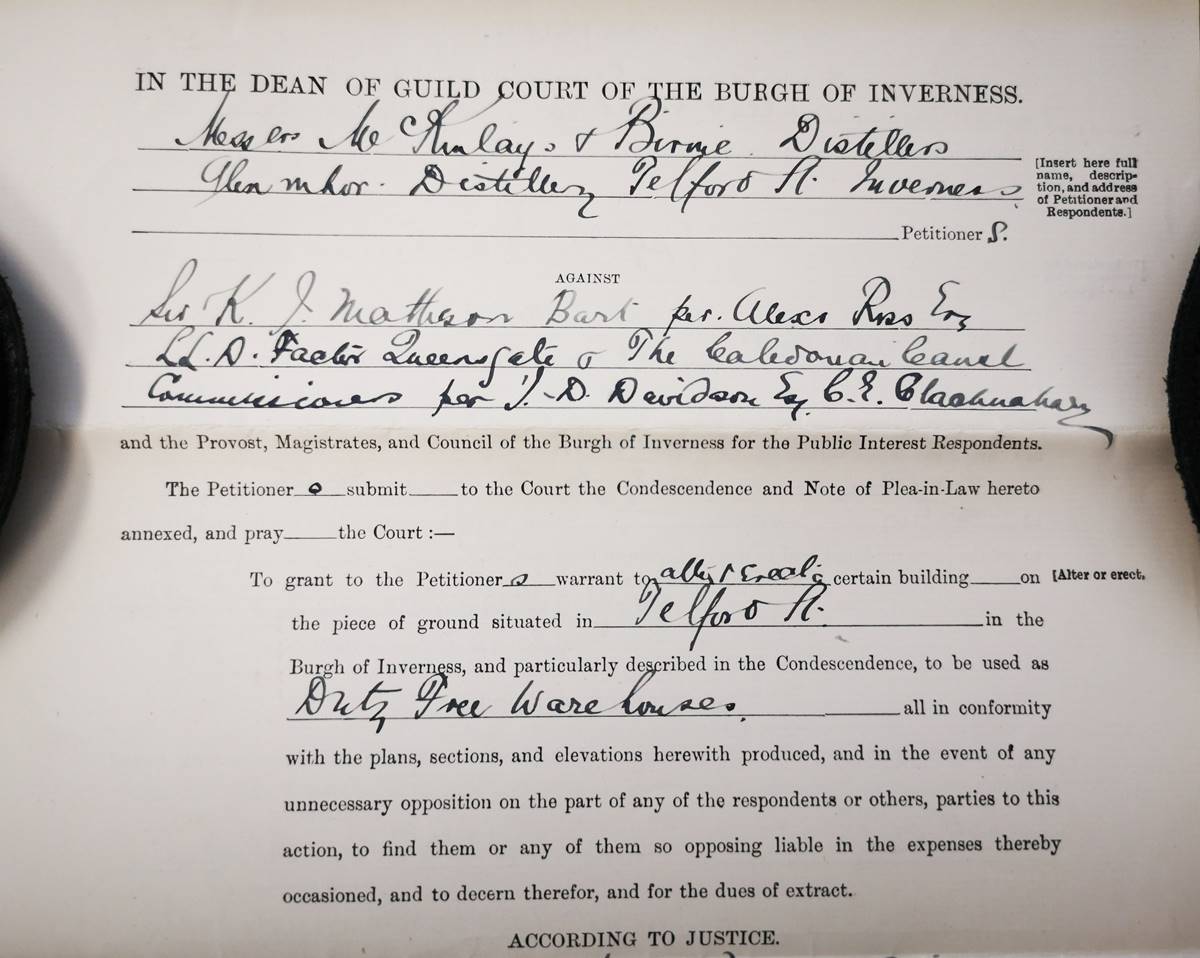 IN THE DEAN OF GUILD COURT OF THE BURGH OF INVERNESS.
Messrs McKinlays & Birnie Distillers
Glen mhor. Distillery Telford St. Inverness
[Insert here full
name, descrip-
tion, and address
of Petitioner and
Respondents.]
Petitioner S.
AGAINST
Sir K. J. Matheson Bart per. Alexr Ross Esq
LL.D. Factor Queensgate & The Caledonian Canal
Commissioners per J. D. Davidson Esq C.E. Clachnaharry
and the Provost, Magistrates, and Council of the Burgh of Inverness for the Public Interest Respondents.
The Petitioner s submit to the Court the Condescendence and Note of Plea-in-Law hereto
annexed, and pray the Court :—
To grant to the Petitioner s warrant to certain building on [Alter or erect.
the piece of ground situated in Telford St. in the
Burgh of Inverness, and particularly described in the Condescendence, to be used as
Duty Free Warehouses. all in conformity
with the plans, sections, and elevations herewith produced, and in the event of any
unnecessary opposition on the part of any of the respondents or others, parties to this
action, to find them or any of them so opposing liable in the expenses thereby
occasioned, and to decern therefor, and for the dues of extract.
ACCORDING TO JUSTICE.